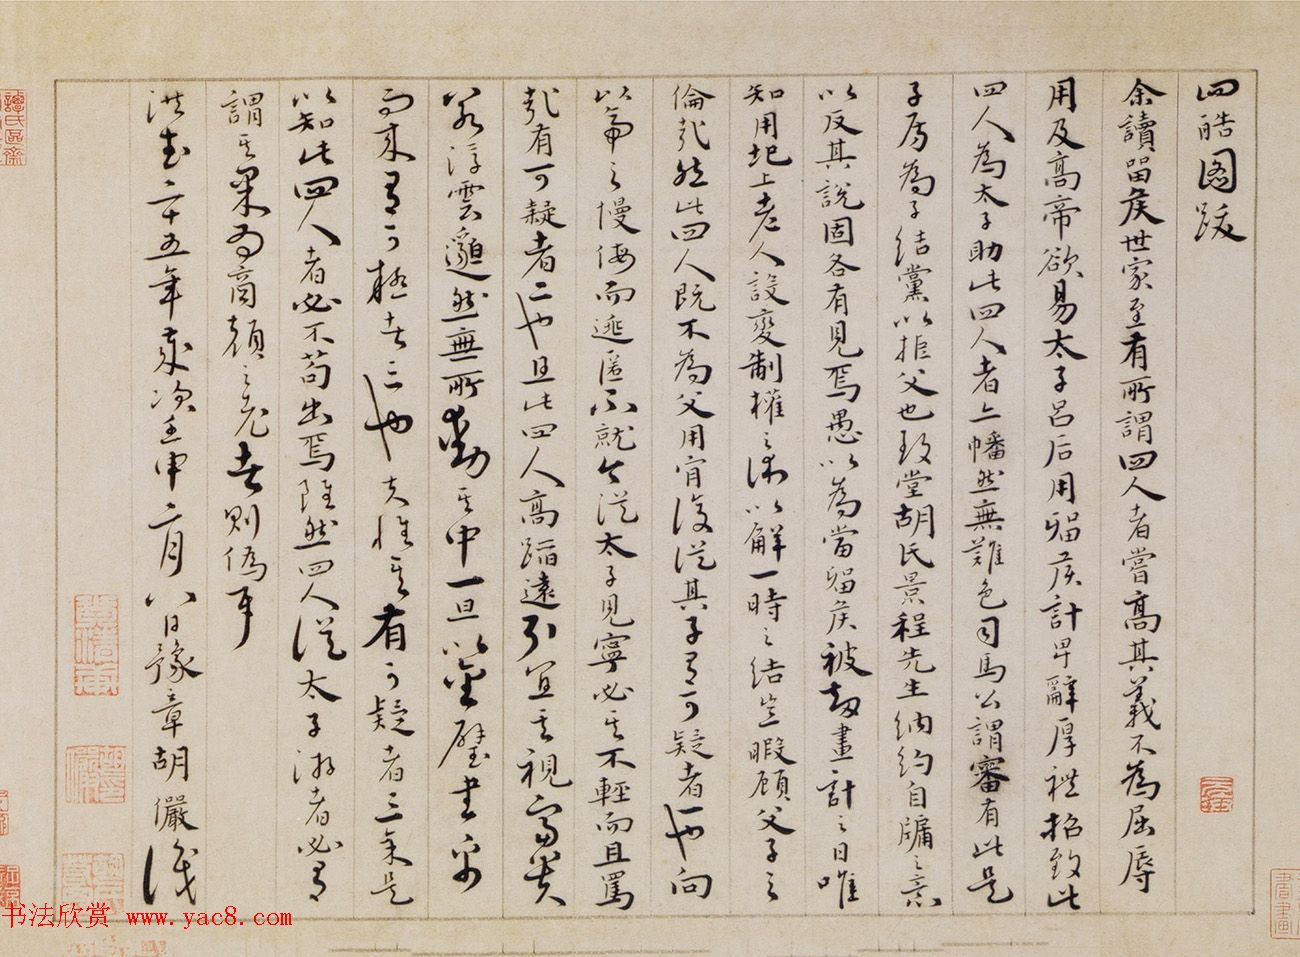 四皓圖跋
余讀留侯世家至有所謂四人者嘗高其義不為屈辱
用及高帝欲易太子呂后用留侯計卑辭厚禮招致此
四人為太子助此四人者上幡然無難色司馬公謂審有此是
子房為子結黨以拒父也致堂胡氏景程先生納約自牖之意
以反其說固各有見焉愚以為當留侯被劫畫計之日唯
知用圯上老人設變制權之術以解一時之結豈暇顧父子之
倫哉然此四人既不為父用肯復從其子有可疑者一也向
以帝之慢侮而逃匿不就今從太子見寧必其不輕而且罵
哉有可疑者二也且此四人高蹈遠引宜其視富貴
若浮雲邈然無所動其中一旦以金璧書帛
而來有可疑者三也夫惟其有可疑者三氣是
以知此四人者必不苟出焉雖然四人從太子游者必有
謂其果為商顏之老者則偽耳
洪武二十五年歲次壬申二月八日豫章胡儼識
书法欣赏 www.yac8.com